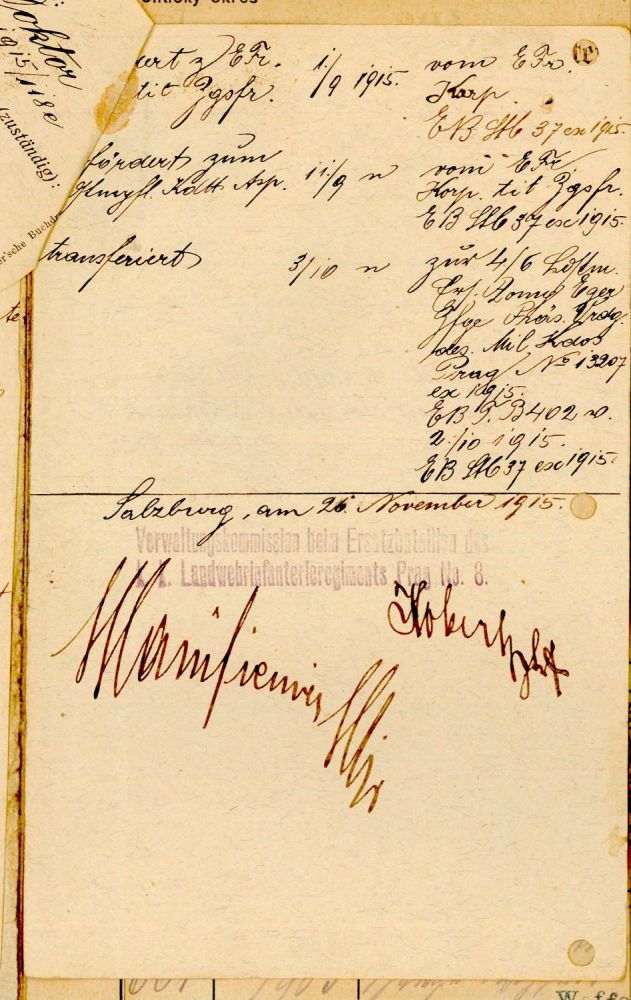 Doktor
1915/1180
(zuständig):
er'sche Buchdr
ert z EFr. 1./9 1915. vom EFr.
tit Zgsfr. Korp.
EB Stb 37 ex 1915.
fördert zum 11./9 " vom EFr.
Kdtt Asp. Korp. tit Zgsfr.
EB Stb 37 ex 1915.
transferiert 3/10 " zur 4/6 Ldstm.
Ers. Komp Eger
Präs.
des Mil Kdos
Prag No 13207
ex 1915.
EB T. B 402 v.
2./10 1915.
EB Stb 37 ex 1915.
Salzburg, am 26. November 1915.
Verwaltungskommission beim Ersatzbataillon des
k. k. Landwehrinfanterieregiments Prag No. 8.